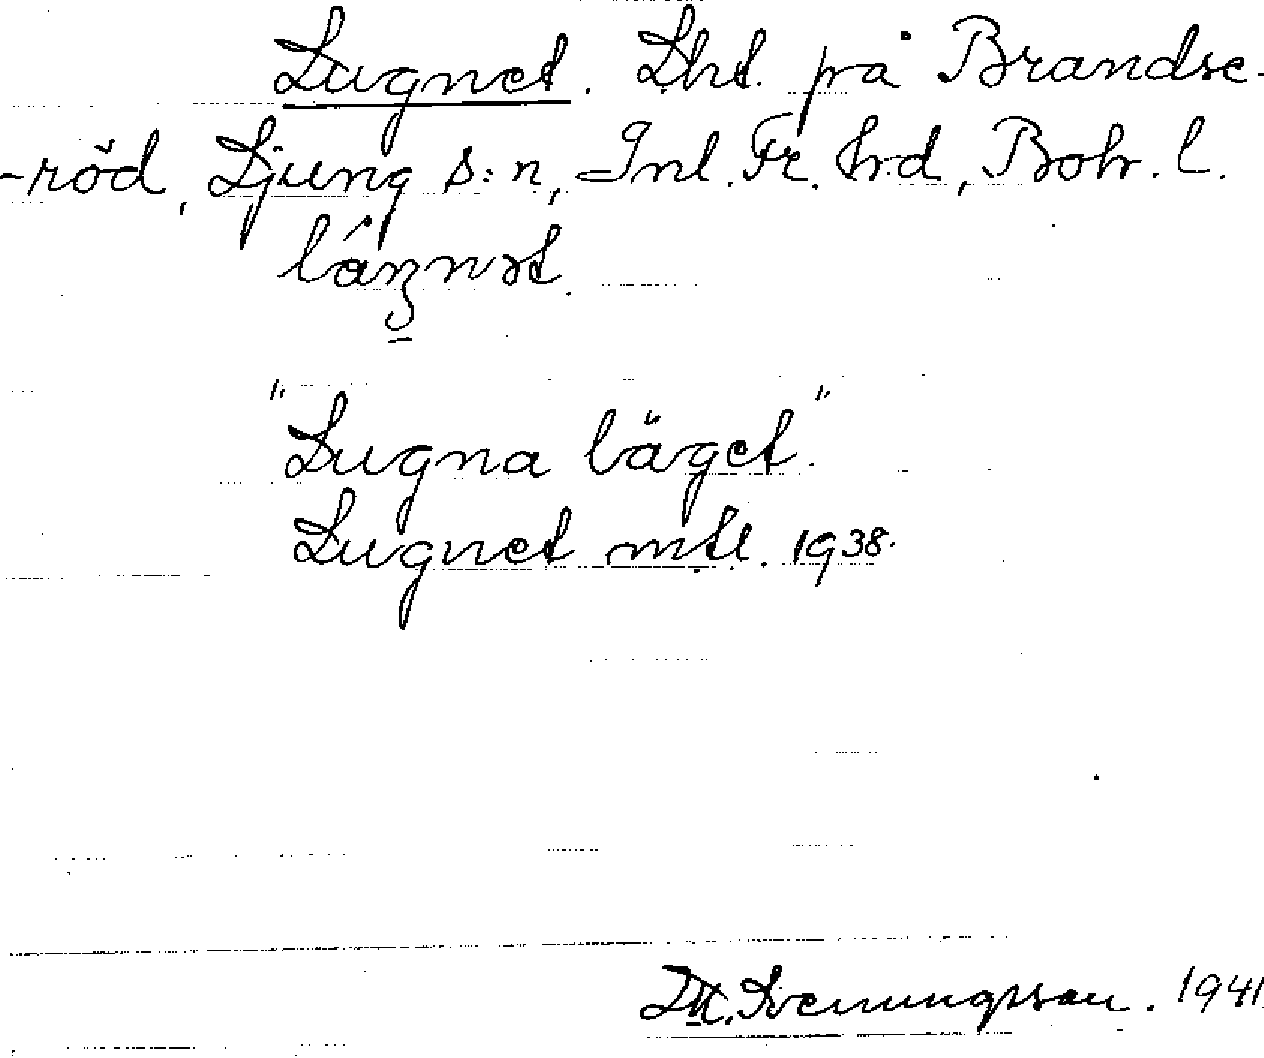 Lugnet. Lht. på Brandse-
-röd, Ljung s:n, Inl. Fr. hd, Boh. l.
"Lugna läget."
Lugnet mtl. 1938.
Svenungsson. 1941